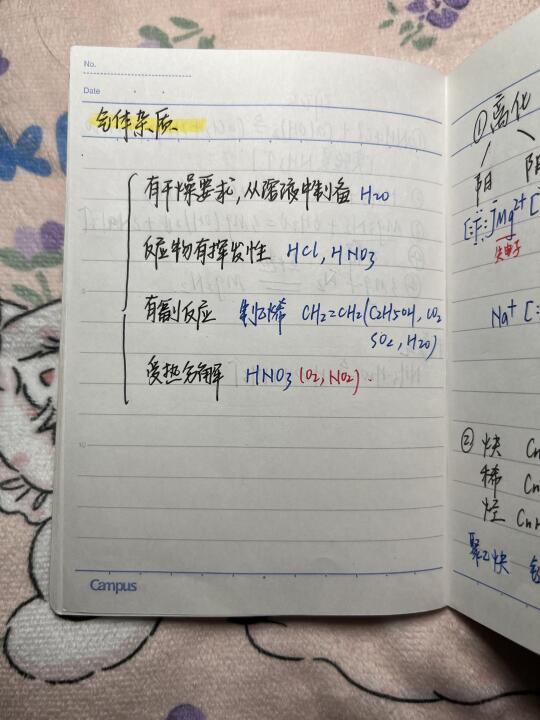 No.
Date
气体杂质
有干燥要求，从溶液中制备 H2O
反应物有挥发性 HCl, HNO3
有副反应 制乙烯 CH2=CH2(C2H5OH, CO2
SO2, H2O)
受热分解 HNO3 (O2, NO2).
10
Campus
① 离化
阴 阳
[:F:]Mg2+[
失电子
Na+ [:
② 炔 Cn
稀 Cn
烃 CnH
聚乙炔